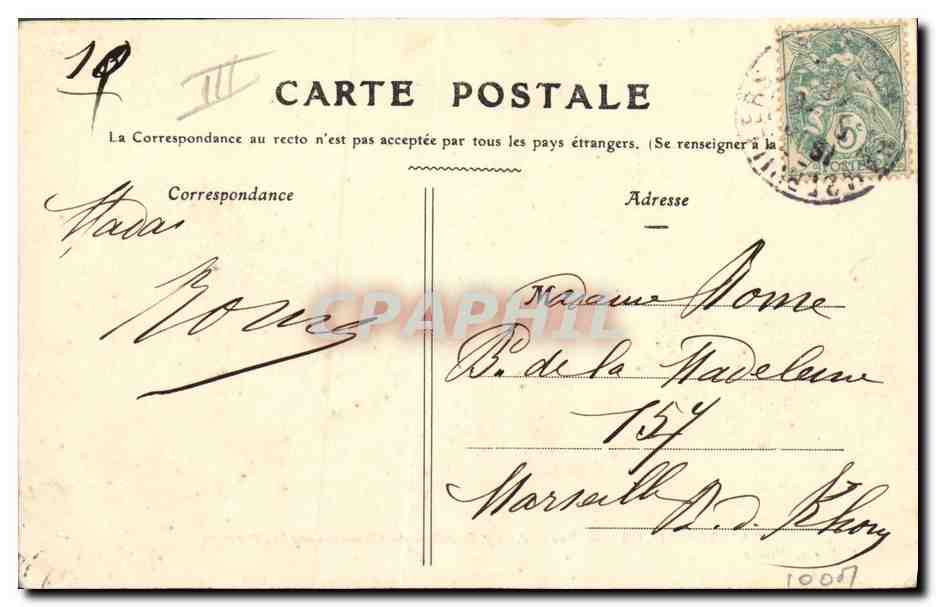 III
CARTE POSTALE
La Correspondance au recto n'est pas acceptée par tous les pays étrangers. (Se renseigner à la
Correspondance
Adresse
Madame Rome
Bd. de la Madeleine
157
Marseille B. d. Rhon
CPAPHIL
100M